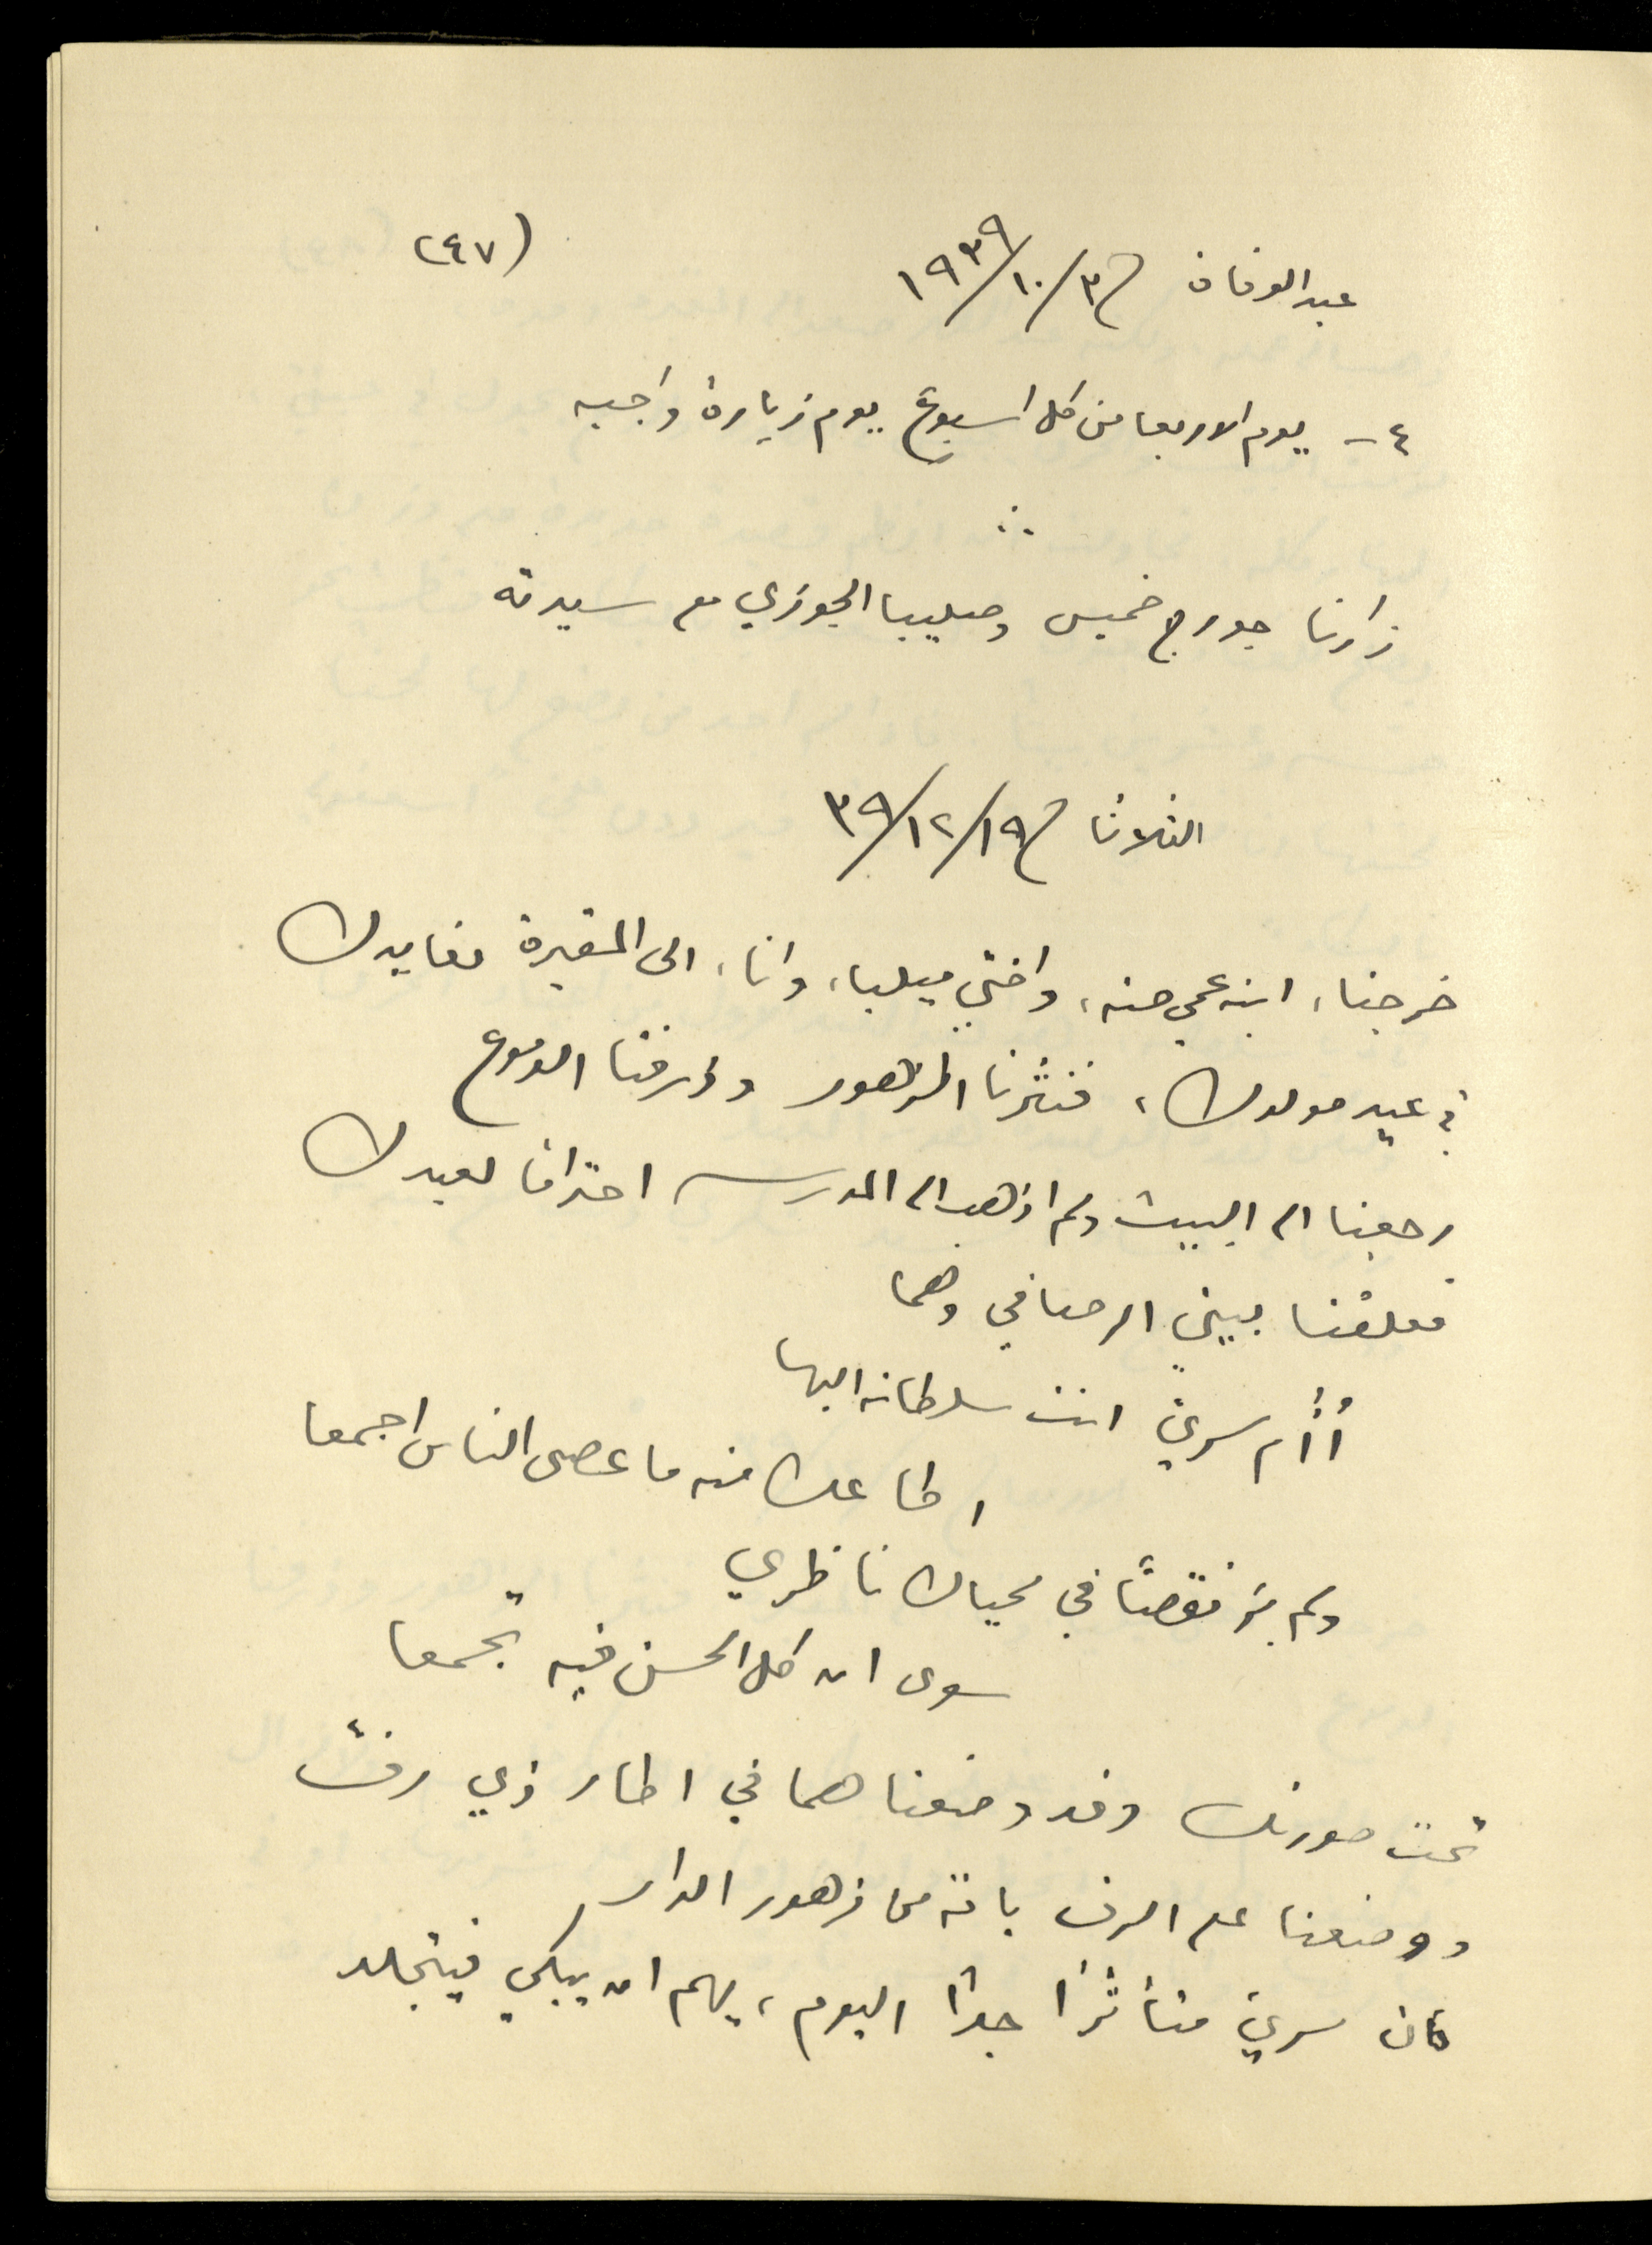 (٢٤٧)
عبد الوفاق ٣/١٠/١٩٣٩
٤ - يوم الاربعا من كل اسبوع يوم زيارة واجبه
زارنا جورج خميس وصليبا الجوزي مع سيدته
الثلاثا ١٩/١٢/٣٩
خرجنا، ابنه عمي حنه، واختي ميليا، وانا، الى المقبرة نعايدك
في عيد مولدك، فنثرنا الزهور وذرفنا الدموع
رجعنا الى البيت ولم اذهب الى المدرسه احتراما لعيدك
فعلقنا بيتي الرصافي وهما
أأم سري انت سلطانه البها
اطاعك منه ما عصى الناس اجمعا
ولم ير نقصًا في محياك ناظري
سوى ان كل الحسن فيه تجمعا
تحت صورتك وقد وضعناهما في اطار ذي رفّ
ووضعنا على الرف باقة من زهور الدار
كان سري متأثرًا جدًا اليوم، يهم ان يبكي فيتجلد